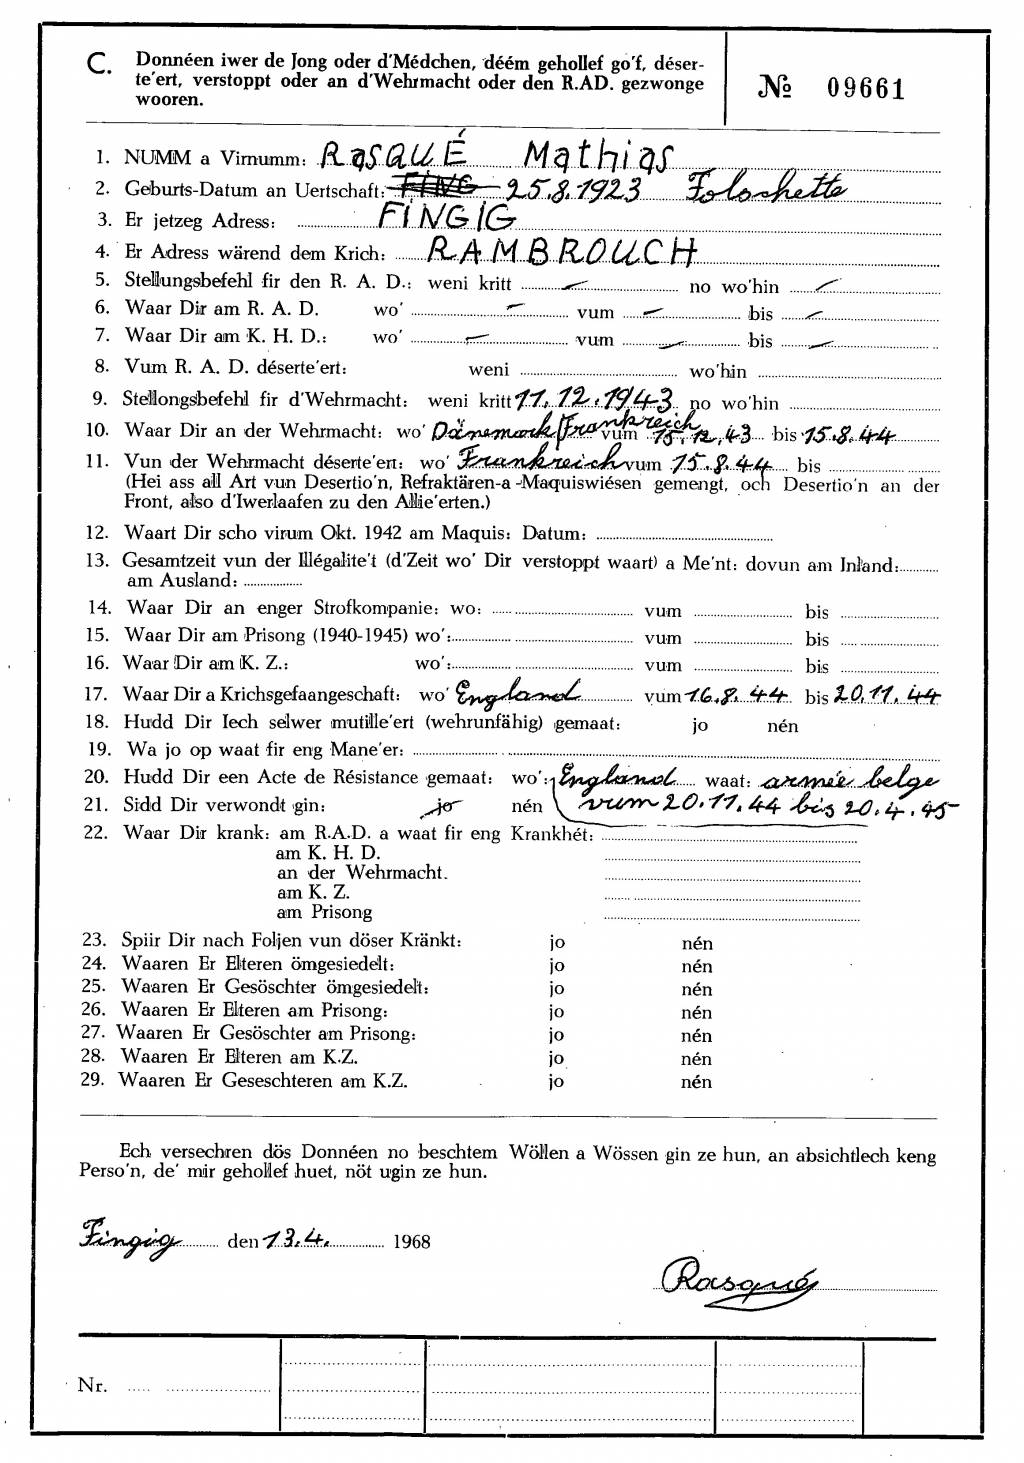 C. Donnéen iwer de Jong oder d'Médchen, déém gehollef go'f, déser-
te'ert, verstoppt oder an d'Wehrmacht oder den R.AD. gezwonge
wooren.
№ 09661
1. NUMM a Virnumm: RASQUÉ Mathias
2. Geburts-Datum an Uertschaft: FING 25.8.1923 Folschette
3. Er jetzeg Adress: FINGIG
4. Er Adress wärend dem Krich: RAMBROUCH
5. Stellungsbefehl fir den R. A. D.: weni kritt — no wo'hin —
6. Waar Dir am R. A. D. wo' — vum — bis —
7. Waar Dir am K. H. D.: wo' — vum — bis —
8. Vum R. A. D. déserte'ert: weni wo'hin
9. Stellongsbefehl fir d'Wehrmacht: weni kritt 11.12.1943 no wo'hin
10. Waar Dir an der Wehrmacht: wo' Dänemark/Frankreich vum 15.12.43 bis 15.8.44
11. Vun der Wehrmacht déserte'ert: wo' Frankreich vum 15.8.44 bis
(Hei ass all Art vun Desertio'n, Refraktären-a -Maquiswiésen gemengt, och Desertio'n an der
Front, also d'Iwerlaafen zu den Allie'erten.)
12. Waart Dir scho virum Okt. 1942 am Maquis: Datum:
13. Gesamtzeit vun der Illégalite't (d'Zeit wo' Dir verstoppt waart) a Me'nt: dovun am Inland:
am Ausland:
14. Waar Dir an enger Strofkompanie: wo: vum bis
15. Waar Dir am Prisong (1940-1945) wo': vum bis
16. Waar Dir am K. Z.: wo': vum bis
17. Waar Dir a Krichsgefaangeschaft: wo' England vum 16.8.44 bis 20.11.44
18. Hudd Dir Iech selwer mutille'ert (wehrunfähig) gemaat: jo nén
19. Wa jo op waat fir eng Mane'er:
20. Hudd Dir een Acte de Résistance gemaat: wo': England waat: armée belge
21. Sidd Dir verwondt gin: jo nén vum 20.11.44 bis 20.4.45
22. Waar Dir krank: am R.A.D. a waat fir eng Krankhét:
am K. H. D.
an der Wehrmacht.
am K. Z.
am Prisong
23. Spiir Dir nach Foljen vun döser Kränkt: jo nén
24. Waaren Er Elteren ömgesiedelt: jo nén
25. Waaren Er Gesöschter ömgesiedelt: jo nén
26. Waaren Er Elteren am Prisong: jo nén
27. Waaren Er Gesöschter am Prisong: jo nén
28. Waaren Er Elteren am K.Z. jo nén
29. Waaren Er Geseschteren am K.Z. jo nén
Ech versechren dös Donnéen no beschtem Wöllen a Wössen gin ze hun, an absichtlech keng
Perso'n, de' mir gehollef huet, nöt ugin ze hun.
Fingig den 13.4. 1968
Rasqué
Nr.